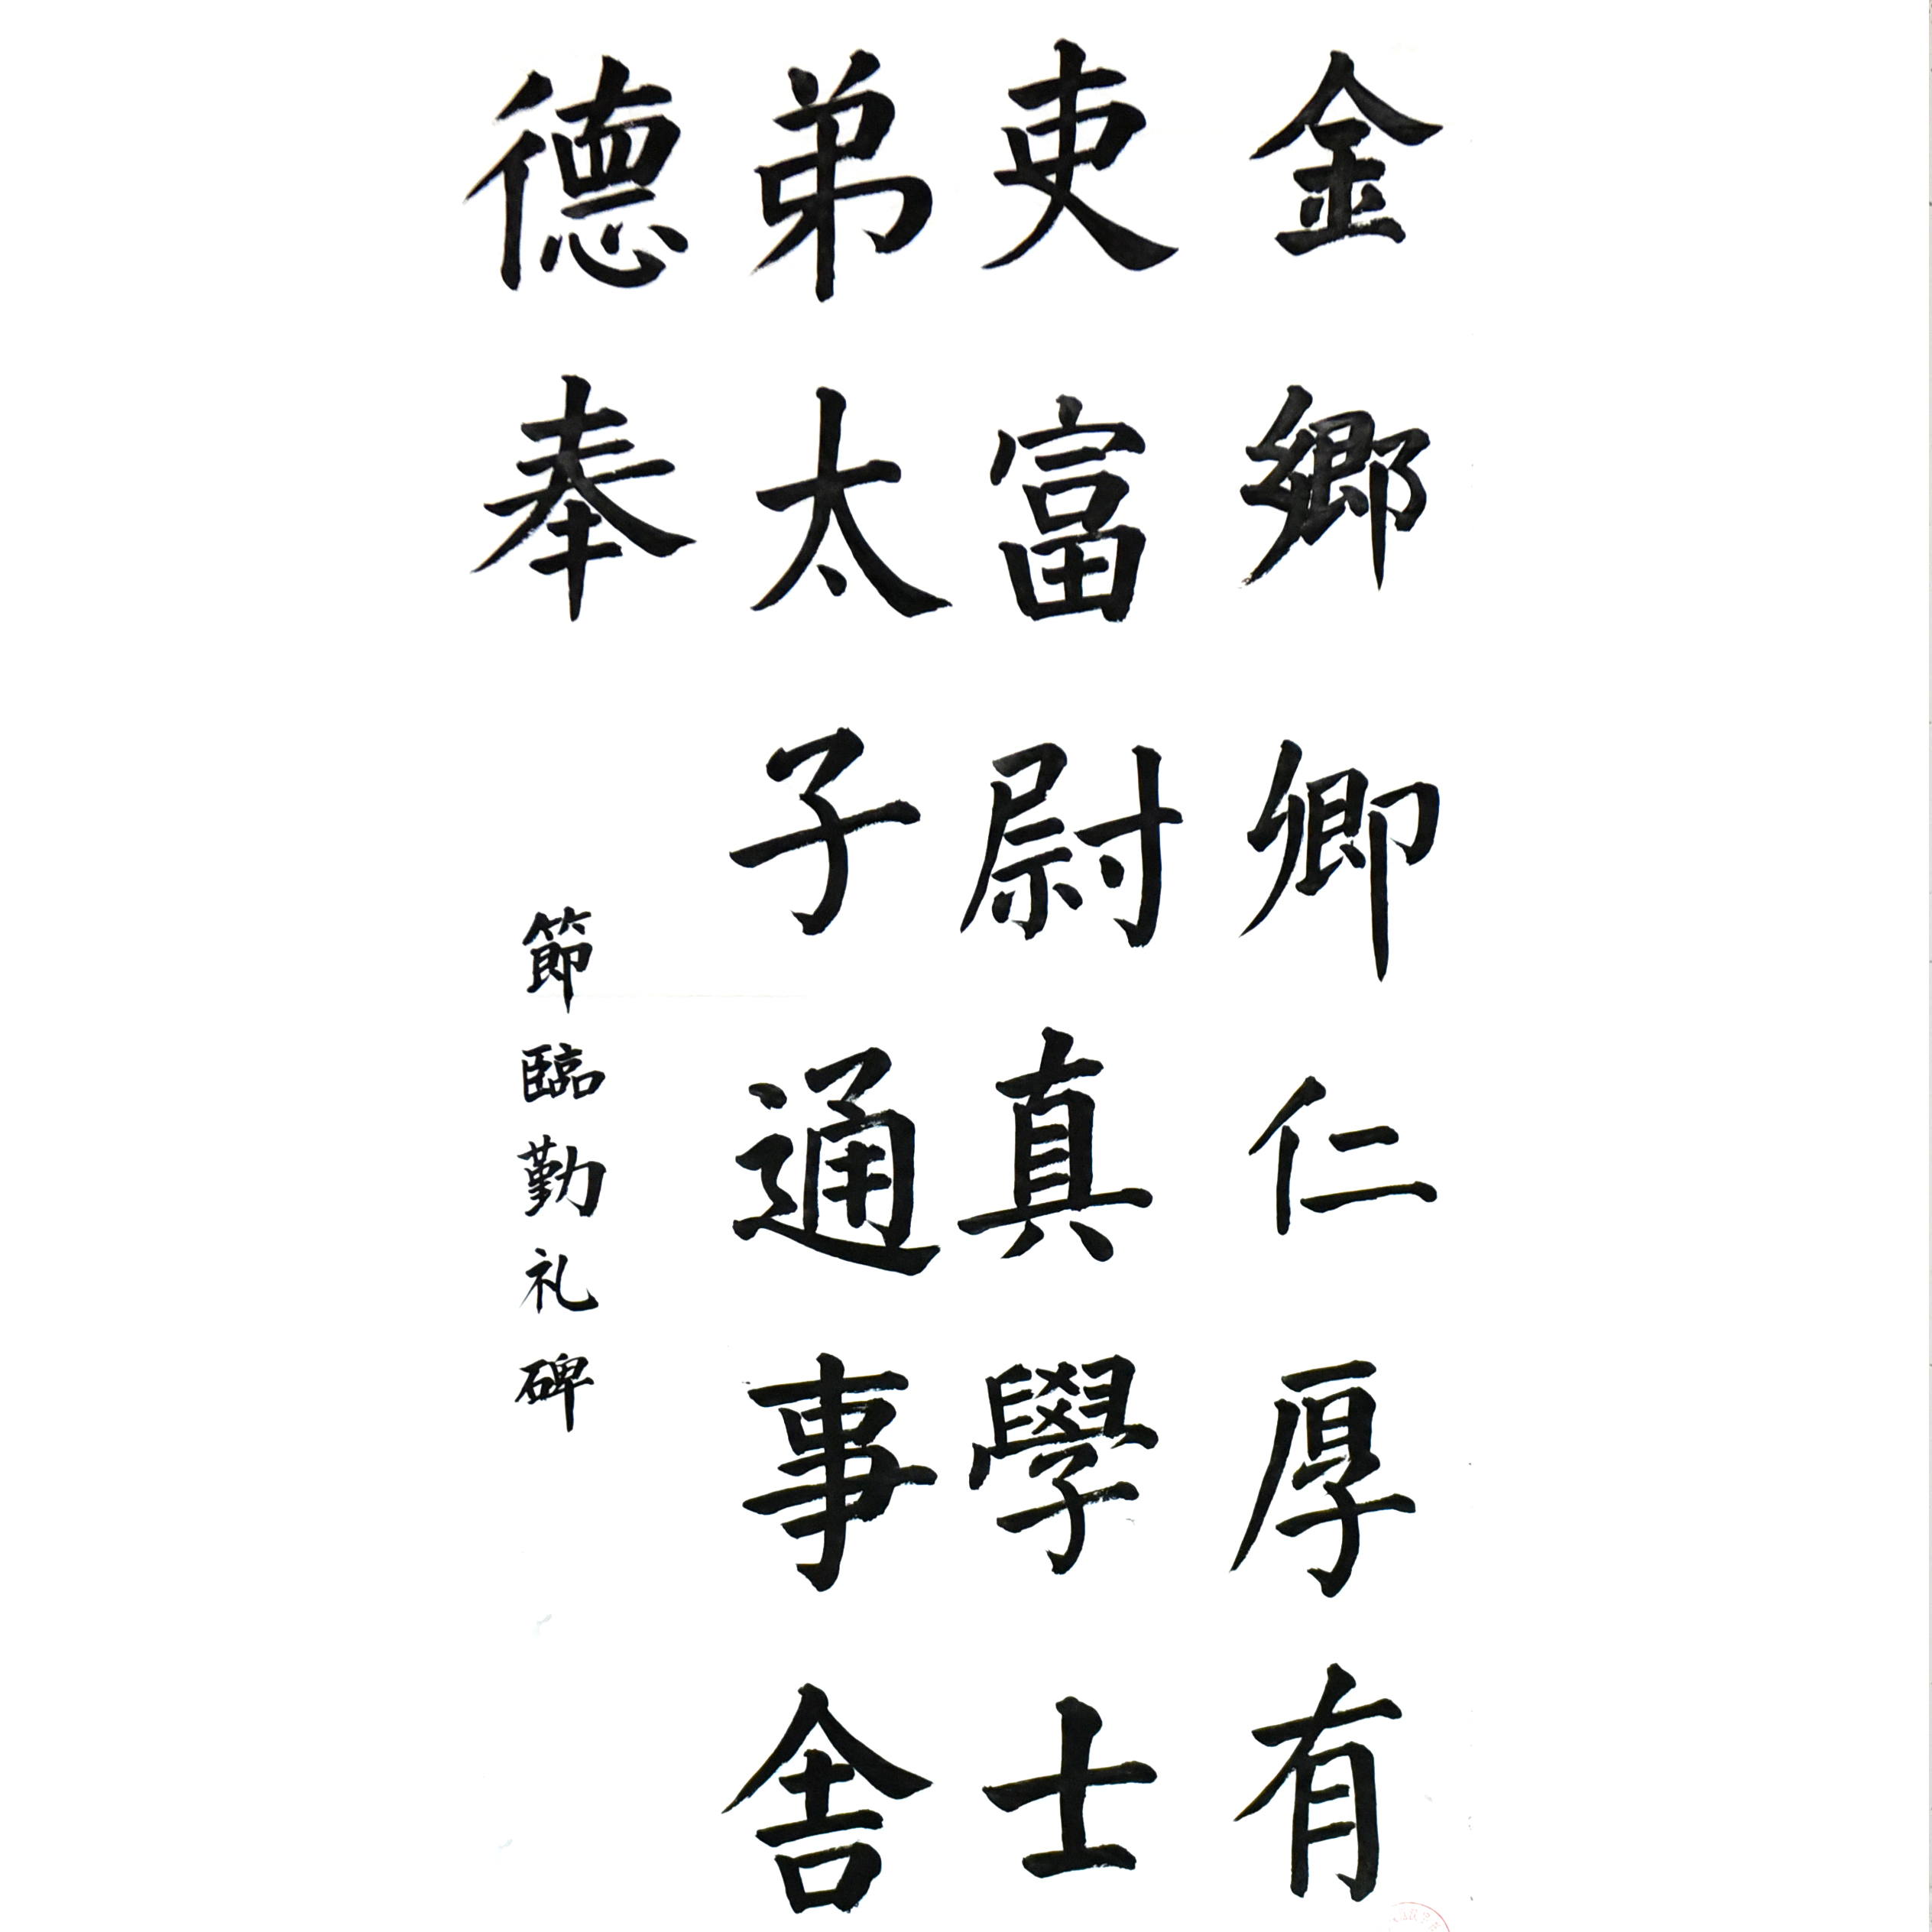 金鄉卿仁厚有
吏富尉真學士
弟太子通事舍
德奉
節臨勤礼碑